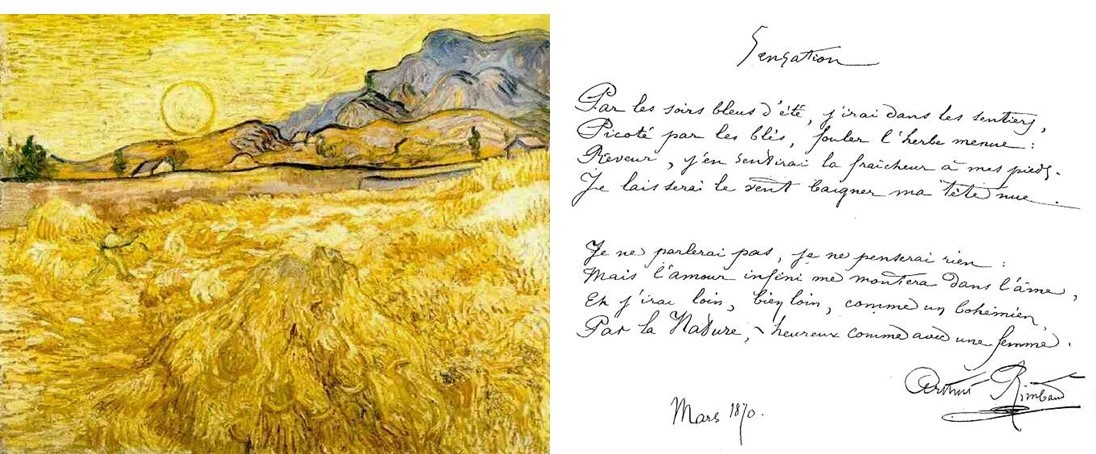 Sensation
Par les soirs bleus d'été, j'irai dans les sentiers,
Picoté par les blés, fouler l'herbe menue :
Rêveur, j'en sentirai la fraîcheur à mes pieds.
Je laisserai le vent baigner ma tête nue.
Je ne parlerai pas, je ne penserai rien :
Mais l'amour infini me montera dans l'âme,
Et j'irai loin, bien loin, comme un bohémien,
Par la Nature, heureux comme avec une femme.
Arthur Rimbaud
Mars 1870.